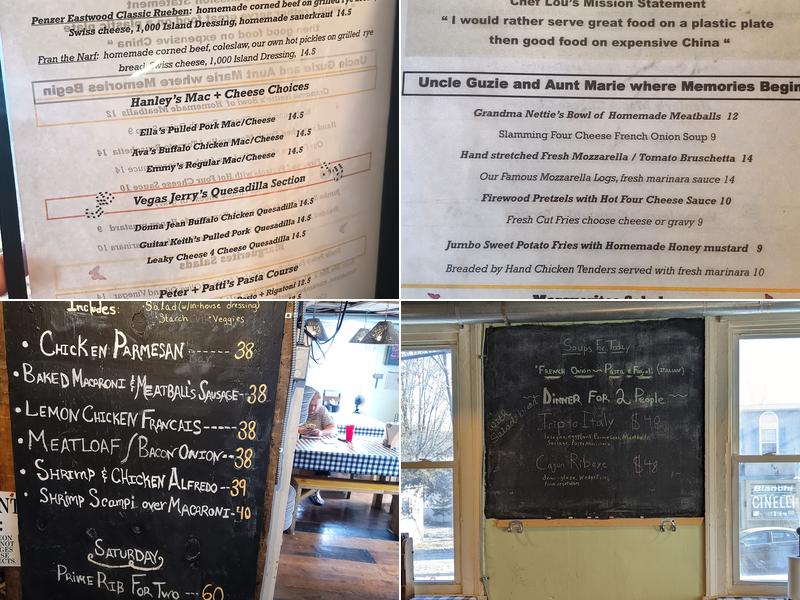 Penzer Eastwood Classic Rueben: homemade corned beef on grilled rye
Swiss cheese, 1,000 Island Dressing, homemade sauerkraut 14.5
Fran the Narf: homemade corned beef, coleslaw, our own hot pickles on grilled rye
bread Swiss cheese, 1,000 Island Dressing, 14.5
Hanley's Mac + Cheese Choices
Ella's Pulled Pork Mac/Cheese 14.5
Ava's Buffalo Chicken Mac/Cheese 14.5
Emmy's Regular Mac/Cheese 14.5
Vegas Jerry's Quesadilla Section
Donna Jean Buffalo Chicken Quesadilla 14.5
Guitar Keith's Pulled Pork Quesadilla 14.5
Leaky Cheese 4 Cheese Quesadilla 14.5
Peter + Patti's Pasta Course
Pasto + Rigatoni 12.5
Chef Lou's Mission Statement
" I would rather serve great food on a plastic plate
then good food on expensive China "
Uncle Guzie and Aunt Marie where Memories Begin
Grandma Nettie's Bowl of Homemade Meatballs 12
Slamming Four Cheese French Onion Soup 9
Hand stretched Fresh Mozzarella / Tomato Bruschetta 14
Our Famous Mozzarella Logs, fresh marinara sauce 14
Firewood Pretzels with Hot Four Cheese Sauce 10
Fresh Cut Fries choose cheese or gravy 9
Jumbo Sweet Potato Fries with Homemade Honey mustard 9
Breaded by Hand Chicken Tenders served with fresh marinara 10
Includes: Salad (w/in-house dressing)
Starch Veggies
• Chicken Parmesan ------ 38
• Baked Macaroni & Meatballs Sausage--38
• Lemon Chicken Francais -----38
• Meatloaf / Bacon Onion--38
• Shrimp & Chicken Alfredo--39
• Shrimp Scampi over Macaroni-40
Saturday
Prime Rib For Two --- 60
Soups For Today
French Onion Pasta & Fagoli (Italian)
Dinner For 2 People
Trip to Italy $40
Cajun Ribeye $48
Bianchi
CINELLI